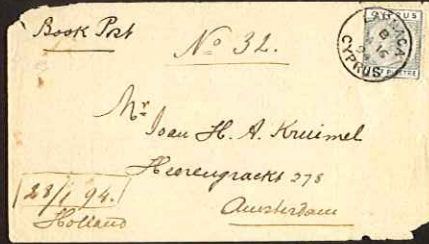 Book Post
No 32.
CYPRUS
LARNACA
CYPRUS
PIASTRE
Mr
Joan H. A. Kruimel
Heerengracht 278
Amsterdam
28/1 94.
Holland